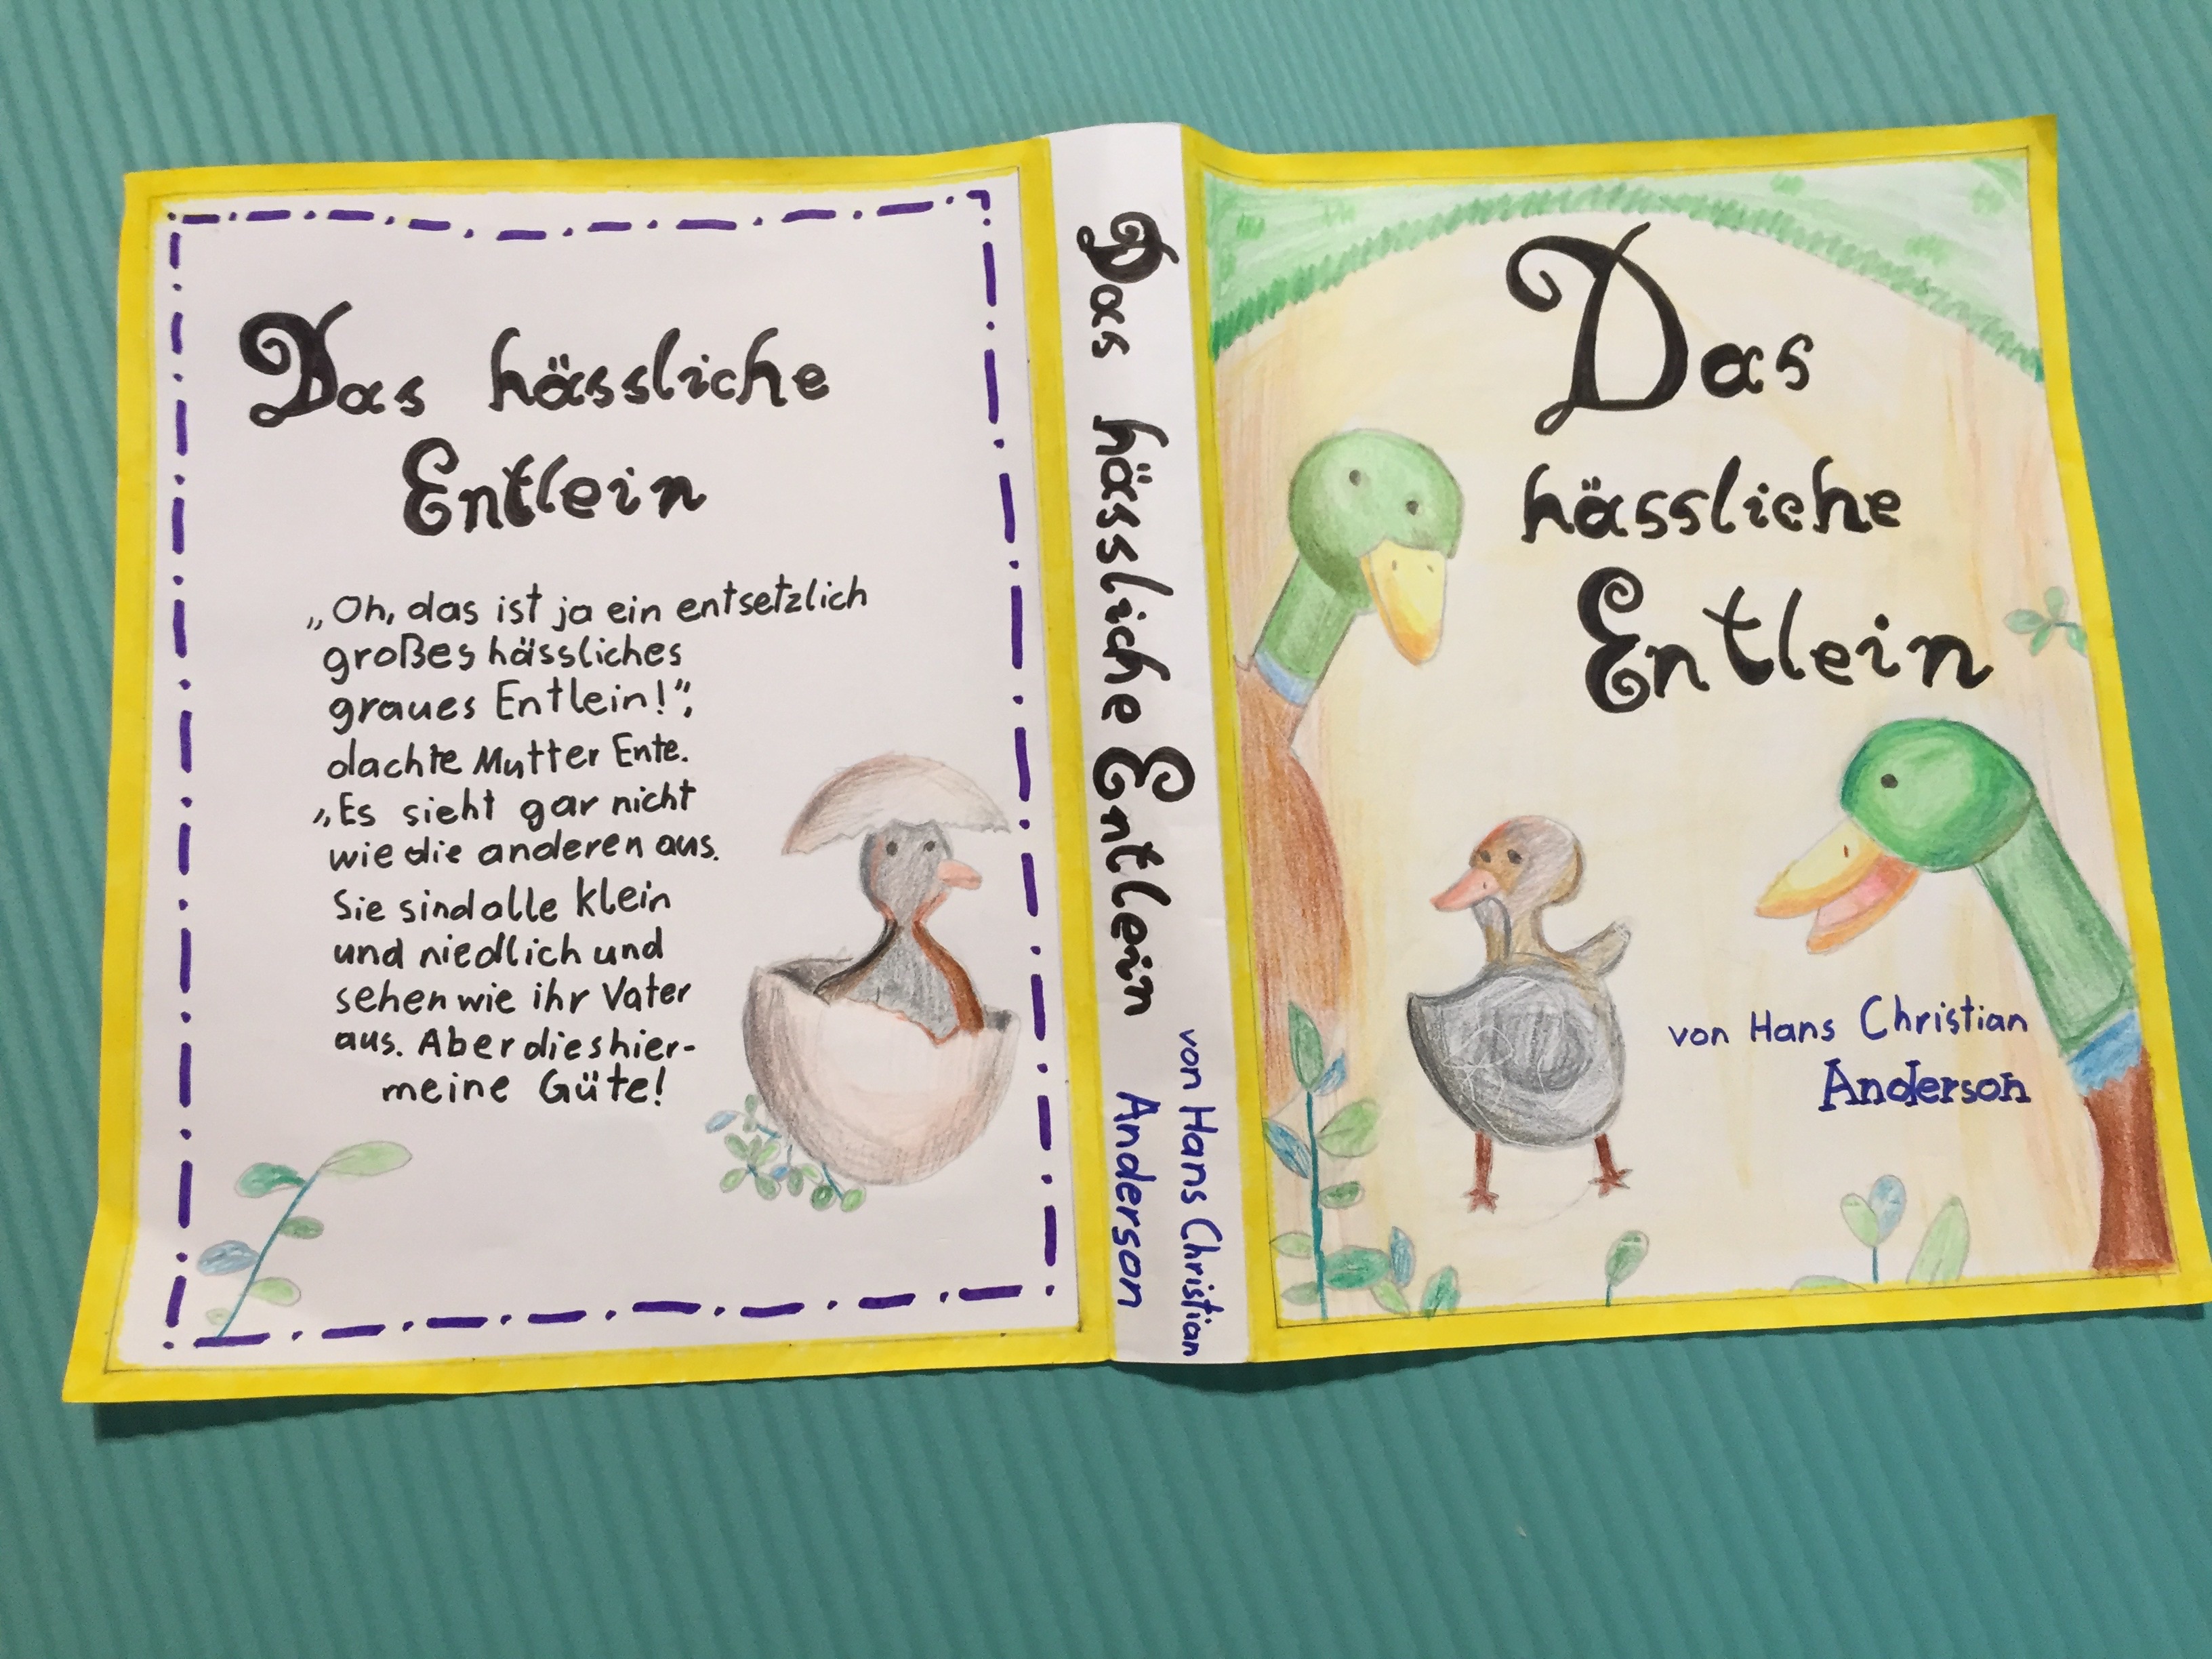 Das hässliche
Entlein
„Oh, das ist ja ein entsetzlich
großes hässliches
graues Entlein!",
dachte Mutter Ente.
„Es sieht gar nicht
wie die anderen aus.
Sie sind alle klein
und niedlich und
sehen wie ihr Vater
aus. Aber dies hier-
meine Güte!
Das hässliche Entlein
von Hans Christian
Anderson
Das
hässliche
Entlein
von Hans Christian
Anderson